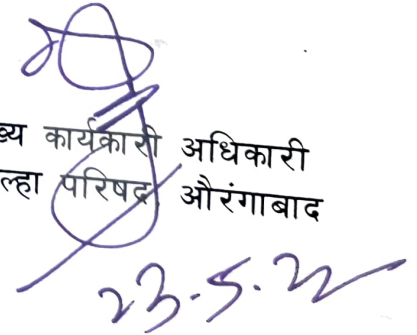 ख्य कार्यकारी अधिकारी
ल्हा परिषद औरंगाबाद
23.5.22